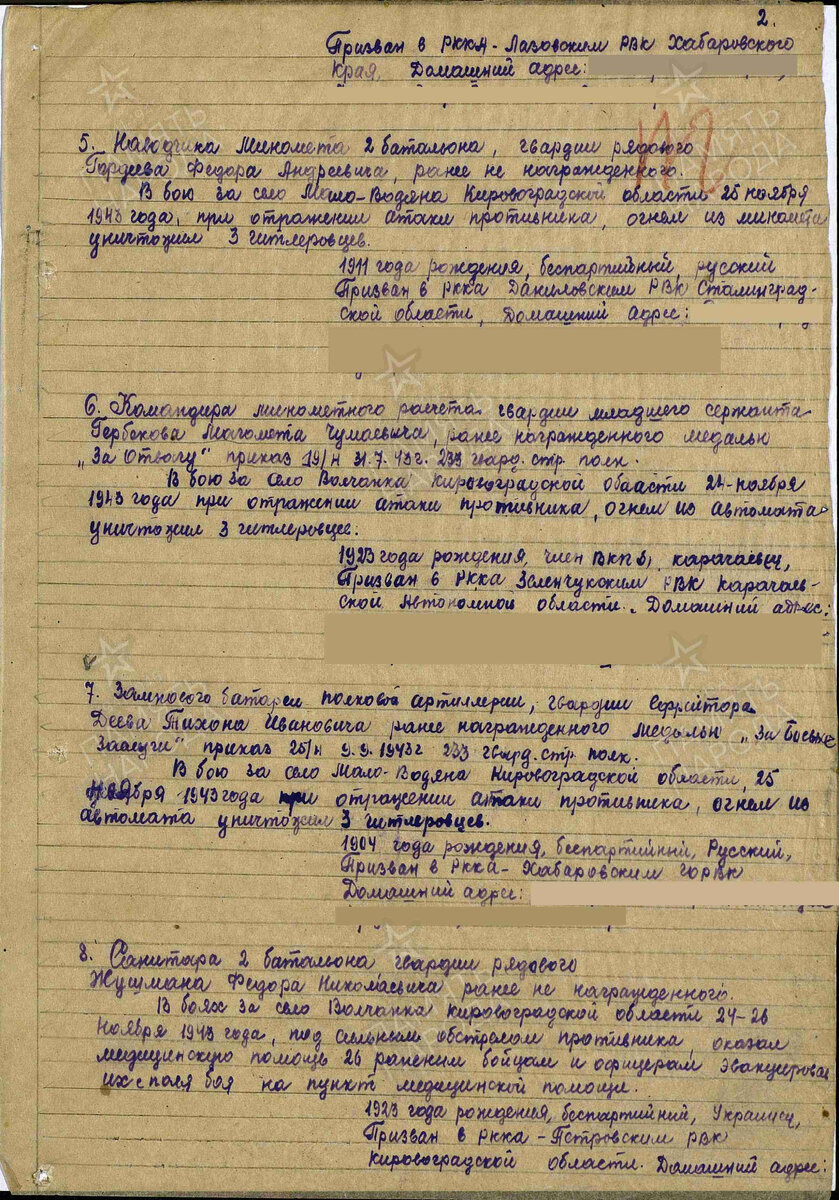 2.
Призван в РККА - Лазовским РВК Хабаровского
Края, Домашний адрес:
5. Наводчика миномета 2 батальона, гвардии рядового
Гордеева Федора Андреевича, ранее не награжденного.
В бою за село Мало-Водяна Кировоградской области 25 ноября
1943 года, при отражении атаки противника, огнем из миномета
уничтожил 3 гитлеровцев.
1911 года рождения, беспартийный, русский
Призван в РККА Даниловским РВК Сталинград-
ской области, Домашний адрес:
6. Командира минометного расчета гвардии младшего сержанта
Гербекова Магомета Чумаевича, ранее награжденного медалью
„За Отвагу" приказ 19/н 31.7.43г. 233 гвард. стр. полк.
В бою за село Волчанка Кировоградской области 24-ноября
1943 года при отражении атаки противника, огнем из автомата
уничтожил 3 гитлеровцев.
1923 года рождения, член ВКПб, карачаевец,
Призван в РККА Зеленчукским РВК Карачаев-
ской Автономной области. Домашний адрес:
7. Замкового батареи полковой артиллерии, гвардии Ефрейтора
Деева Тихона Ивановича ранее награжденного медалью „За Боевые
Заслуги" приказ 25/н 9.9.1943г 233 гвард. стр. полк.
В бою за село Мало-Водяна Кировоградской области, 25
ноября 1943 года при отражении атаки противника, огнем из
автомата уничтожил 3 гитлеровцев.
1904 года рождения, беспартийный, Русский,
Призван в РККА - Хабаровским горВК
Домашний адрес:
8. Санитара 2 батальона гвардии рядового
Жушмана Федора Николаевича ранее не награжденного.
В боях за село Волчанка Кировоградской области 24-26
ноября 1943 года, под сильным обстрелом противника, оказал
медицинскую помощь 26 раненым бойцам и офицерам, эвакуировал
их с поля боя на пункт медицинской помощи.
1923 года рождения, беспартийный, Украинец,
Призван в РККА - Петровским РВК
Кировоградской области. Домашний адрес: